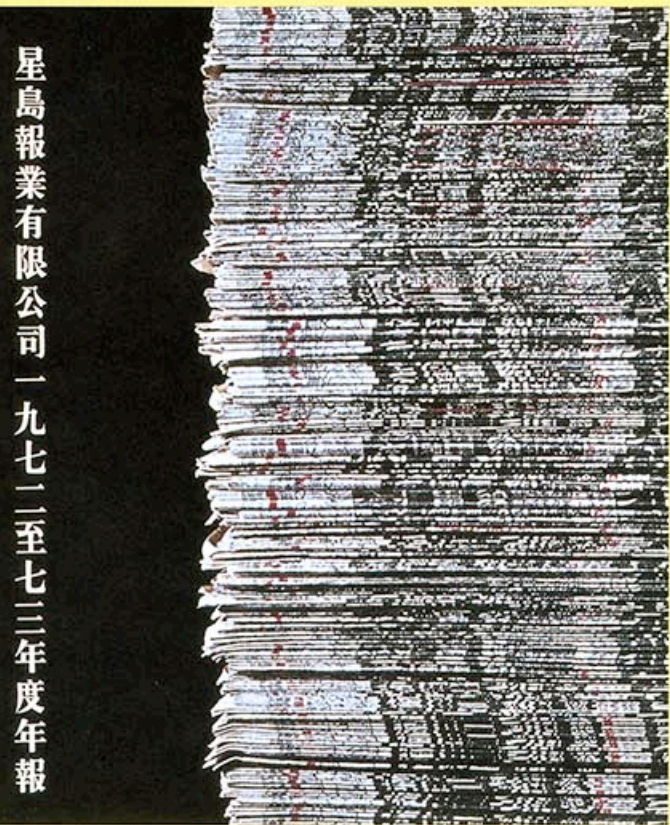 星島報業有限公司一九七二至七三年度年報